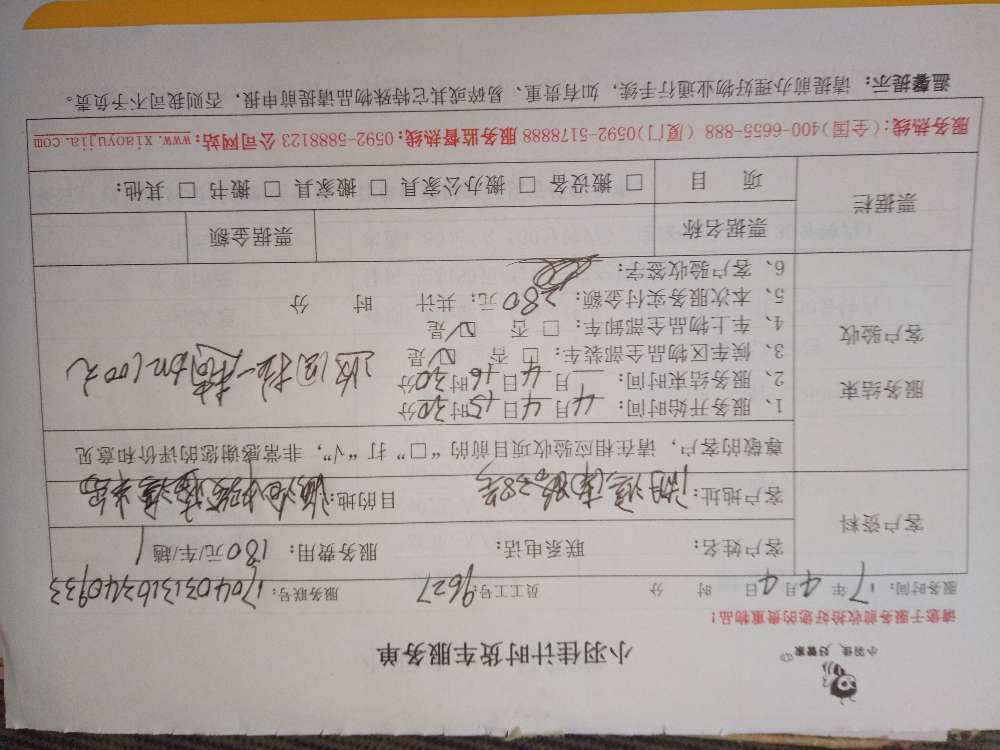 小羽佳 好管家
小羽佳计时货车服务单
请您于服务前收拾好您的贵重物品！
服务时间：17年4月4日 时 分 员工工号：9627 服务联号：1704031316340933
客户资料
客户姓名： 联系电话： 服务费用：180元/车/趟
客户地址：湖滨南路38号 目的地：
服务结束
客户验收
尊敬的客户，请在相应验收项目前的“□”打“√”，非常感谢您的评价和意见
1、服务开始时间：4月4日15时30分
2、服务结束时间：月4日16时30分
3、候车区物品全部装车：□ 否 ☑ 是
4、车上物品全部卸车：□ 否 ☑ 是
5、本次服务实付金额：280元；共计 时 分
6、客户验收签字：
加100元
票据栏
票据名称 票据金额
项目 □ 搬设备 □ 搬办公家具 □ 搬家具 □ 搬书 □ 其他：
服务热线：(全国)400-6655-888 (厦门)0592-5178888 服务监督热线：0592-5888123 公司网站：www.xiaoyujia.com
温馨提示：请提前办理好物业通行手续，如有贵重、易碎或其它特殊物品请提前申报，否则我司不予负责。